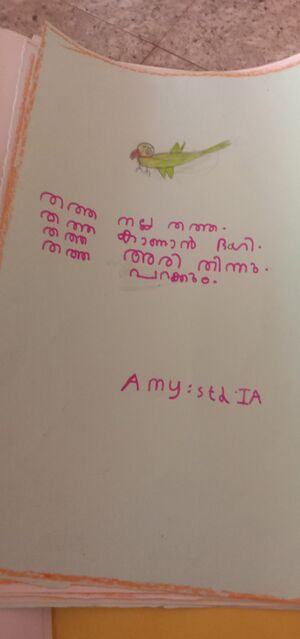 തത്ത നല്ല തത്ത.
തത്ത കാണാൻ ഭംഗി.
തത്ത അരി തിന്നും.
തത്ത പറക്കും.
Amy:std.IA